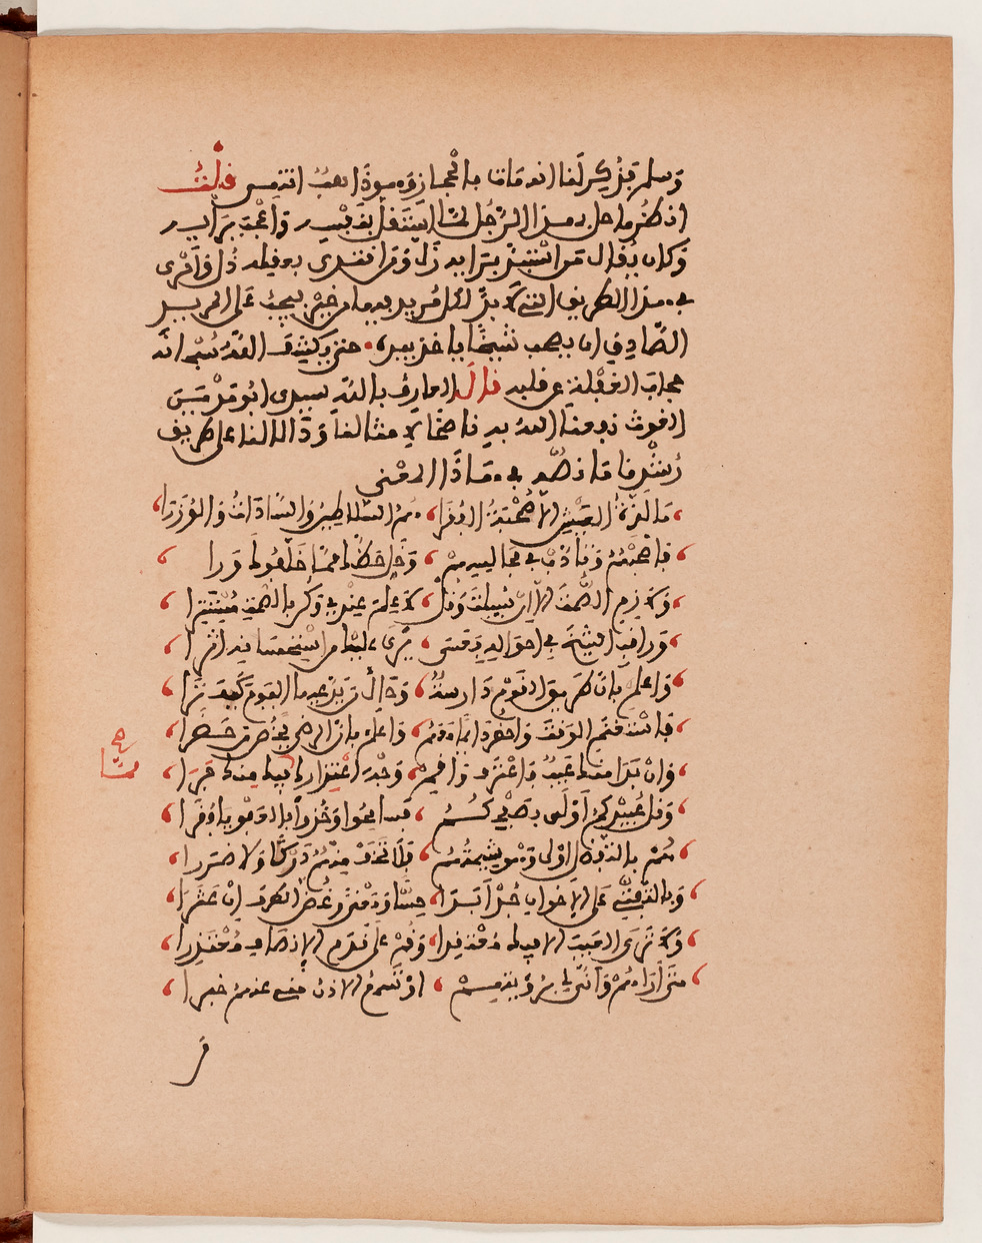 وسلم فذكر لنا انه مات بالحجاز وهو انتهى قلت
انظر ما حل بهذا الرجل لما اشتغل بنفسه واعجب برايه
وكان يقال من استبد برايه زل ومن اقتدى بعقله ذل واحرى
في هذا الطريق التي لا بد لكل مريد فيها من خبير يجب على المريد
الصادق ان يصحب شيخا ياخذ بيده حتى يكشف الله سبحانه
حجاب الغفلة عن قلبه قال العارف بالله سيدي ابو مدين
الغوث نفعنا الله به ناصحا لامثالنا ودالا لنا على طريق
رشدنا ما نصه في هاذا المعنى
ما لذة العيش الا صحبة الفقرا هم السلاطين والسادات والوزرا
فاصحبهم وتادب في مجالسهم وخل حظك مهما خلفوك ورا
ولازم الصمت الا ان سيلت وقل لا علم عندي وكن بالصمت مستترا
وراقب الشيخ في احواله فعسى يرى عليك من استحسانه اثرا
واعلم بان طريق القوم دارسة وحال من يدعيها اليوم كيف ترا
فاستغنم الوقت واحضر دايما معهم واعلم بان الرضى يختص من حضرا
وان بدا منك عيب فاعترف واقم وجه اعتذارك فيك منك جرا
وقل عبيدكم اولى بصفحكم فسامحوا وخذوا بالعفو يا فقرا
هم بالتفضل اولى وهو شيمتهم فلا تخف منهم دركا ولا ضررا
وبالتفتي على الاخوان جد ابدا حسا ومعنى وغض الطرف ان عثرا
ولا ترى العيب الا فيك معتقدا وقم على قدم الانصاف معتذرا
متى اراهم وانى لي برويتهم او تسمع الاذن مني عنهم خبرا